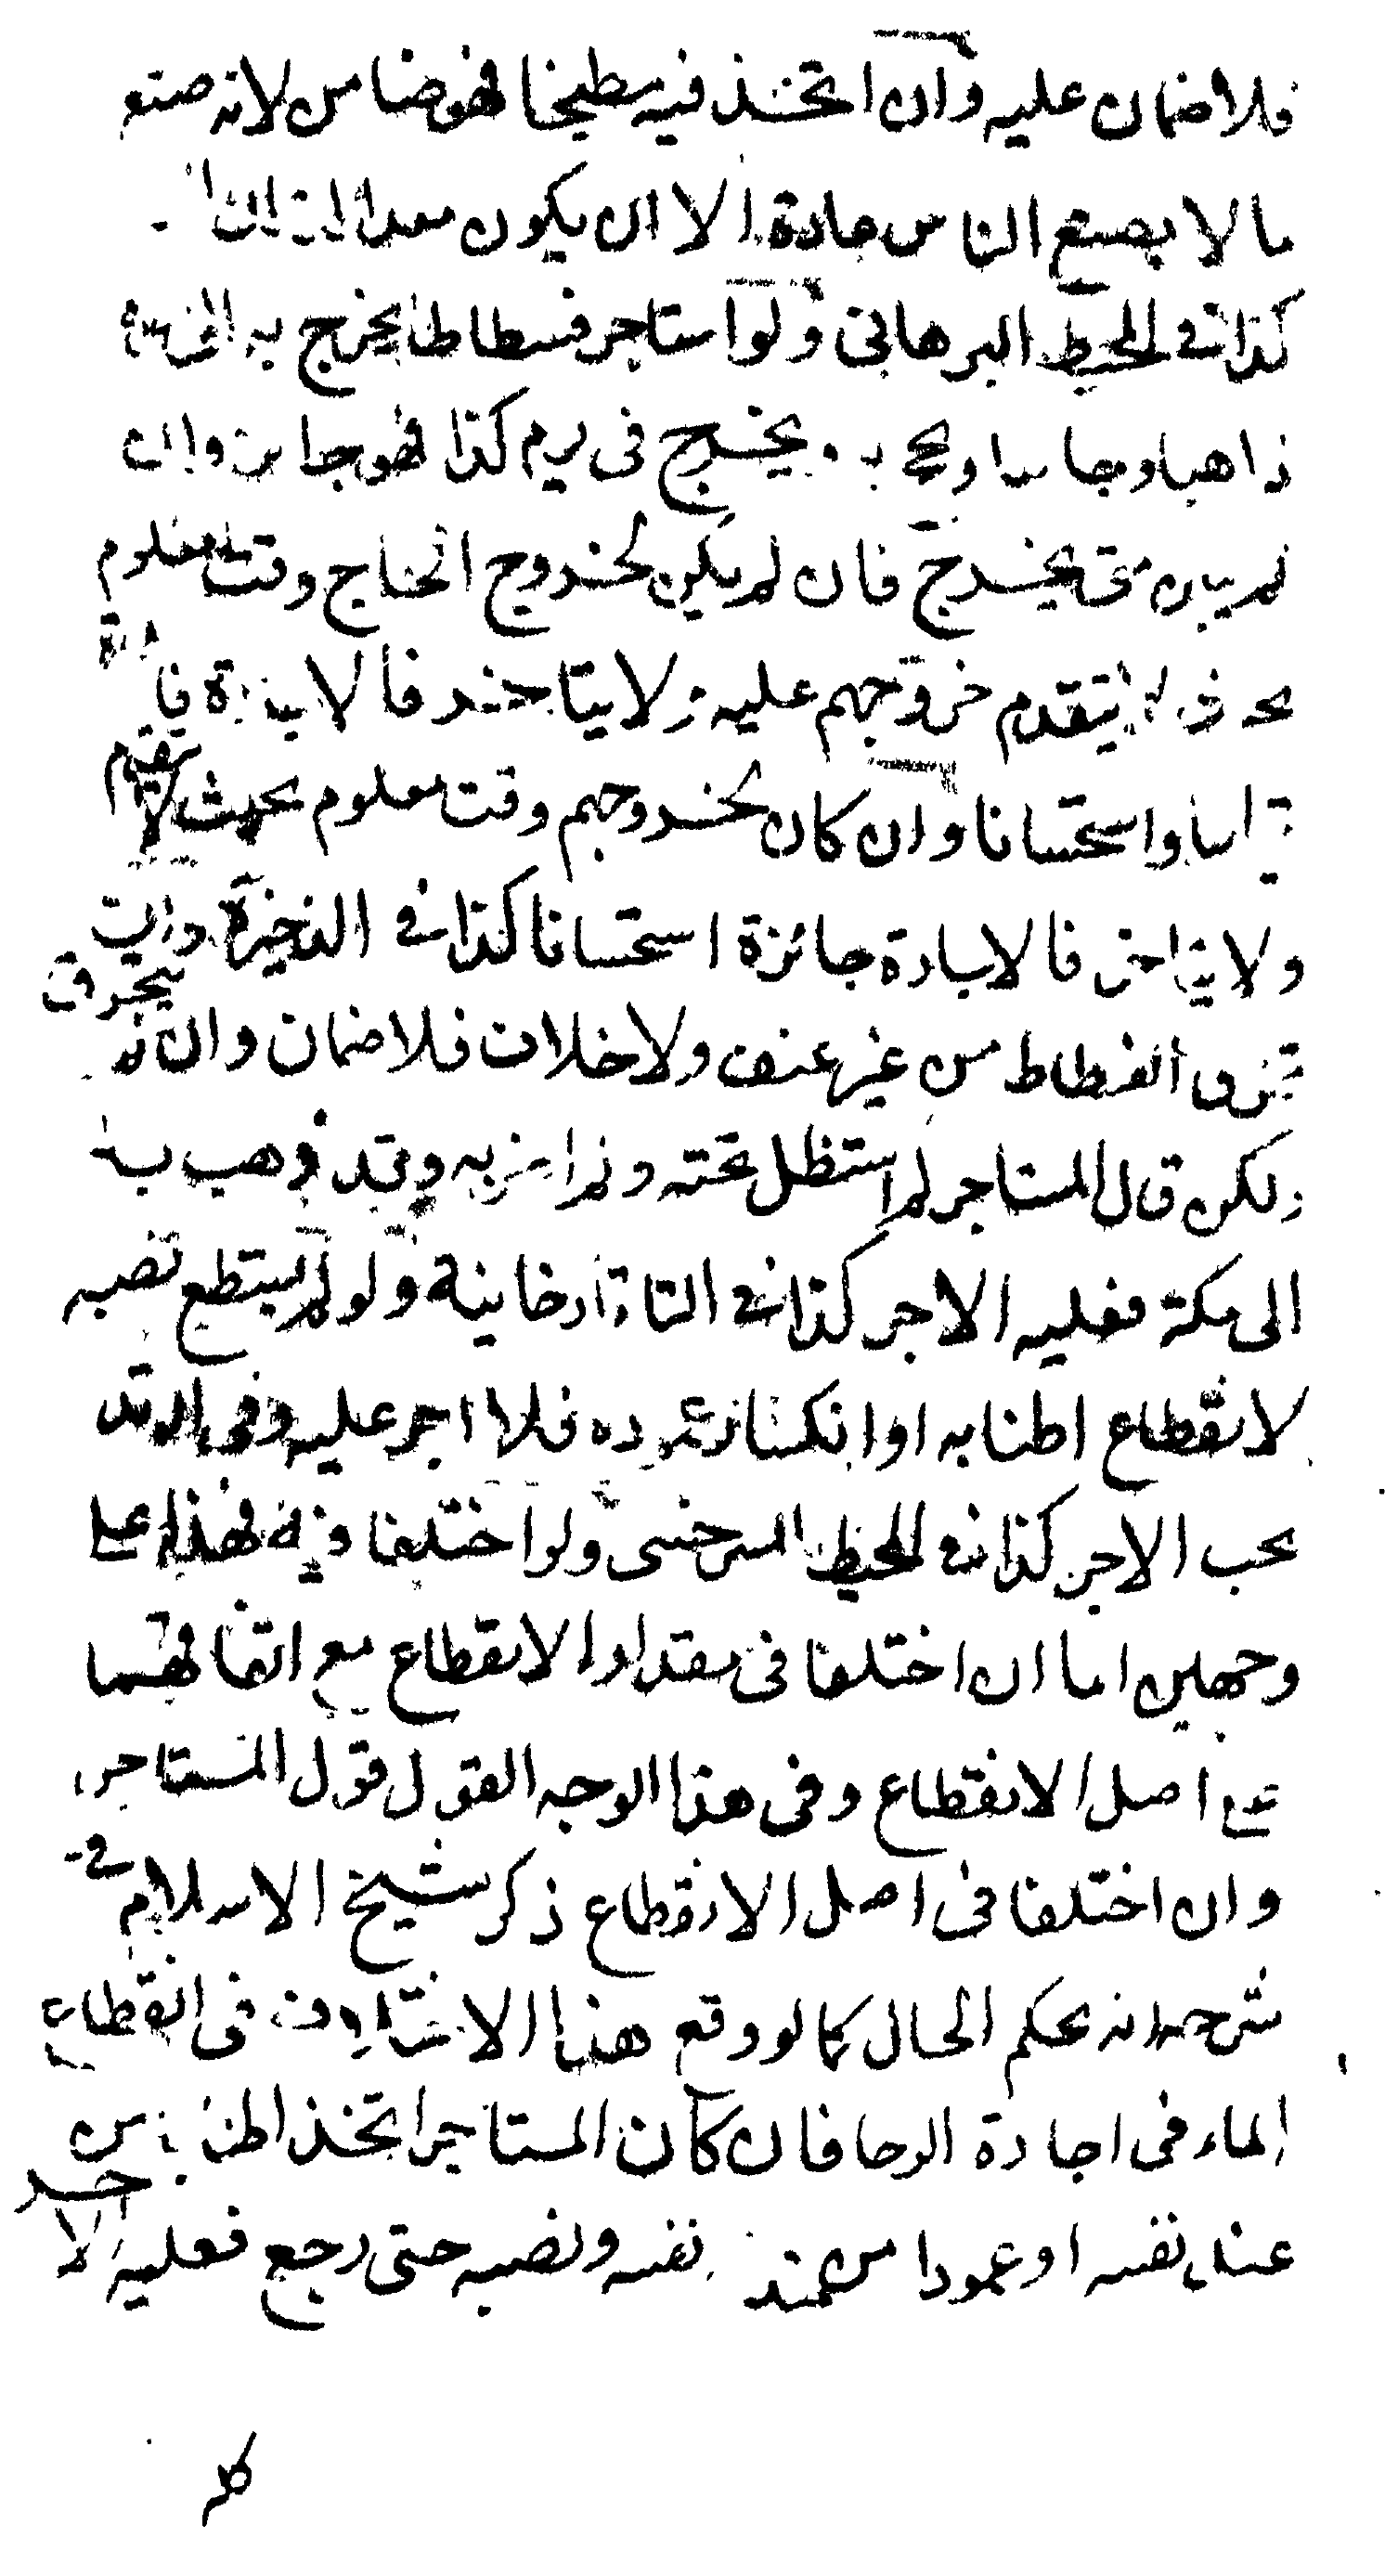 فلا ضمان عليه وان اتخذ فيه مطبخا فهو ضامن لانه صنع
ما لا يصنع الناس عادة الا ان يكون معدا
كذا في المحيط البرهاني ولو استاجر فسطاطا يخرج به الى مكة
ذاهبا وجائيا ويحج به ويخرج في يوم كذا فهو جائز وان
لم يبين متى يخرج فان لم يكن لخروج الحاج وقت معلوم
يتقدم خروجهم عليه ولا يتاخر فالاجارة فاسدة
قياسا واستحسانا وان كان لخروجهم وقت معلوم بحيث لا يتقدم
ولا يتاخر فالاجارة جائزة استحسانا كذا في الذخيرة وان
تخرق الفسطاط من غير عنف ولا خلاف فلا ضمان وان لم يتخرق
ولكن قال المستاجر لم استظل تحته ولم اضربه وقد ذهب به
الى مكة فعليه الاجر كذا في التاتارخانية ولو لم يستطع نصبه
لانقطاع اطنابه او انكسار عموده فلا اجر عليه وفي الوتد
يجب الاجر كذا في المحيط السرخسي ولو اختلفا فيه فهذا على
وجهين اما ان اختلفا في مقدار الانقطاع مع اتفاقهما
على اصل الانقطاع وفي هذا الوجه القول قول المستاجر
وان اختلفا في اصل الانقطاع ذكر شيخ الاسلام في
شرحه انه يحكم الحال كما لو وقع هذا الاختلاف في انقطاع
الماء في اجارة الرحا فان كان المستاجر اتخذ اطنابا من
عند نفسه او عمودا من عند نفسه ونصبه حتى رجع فعليه الاجر
كله